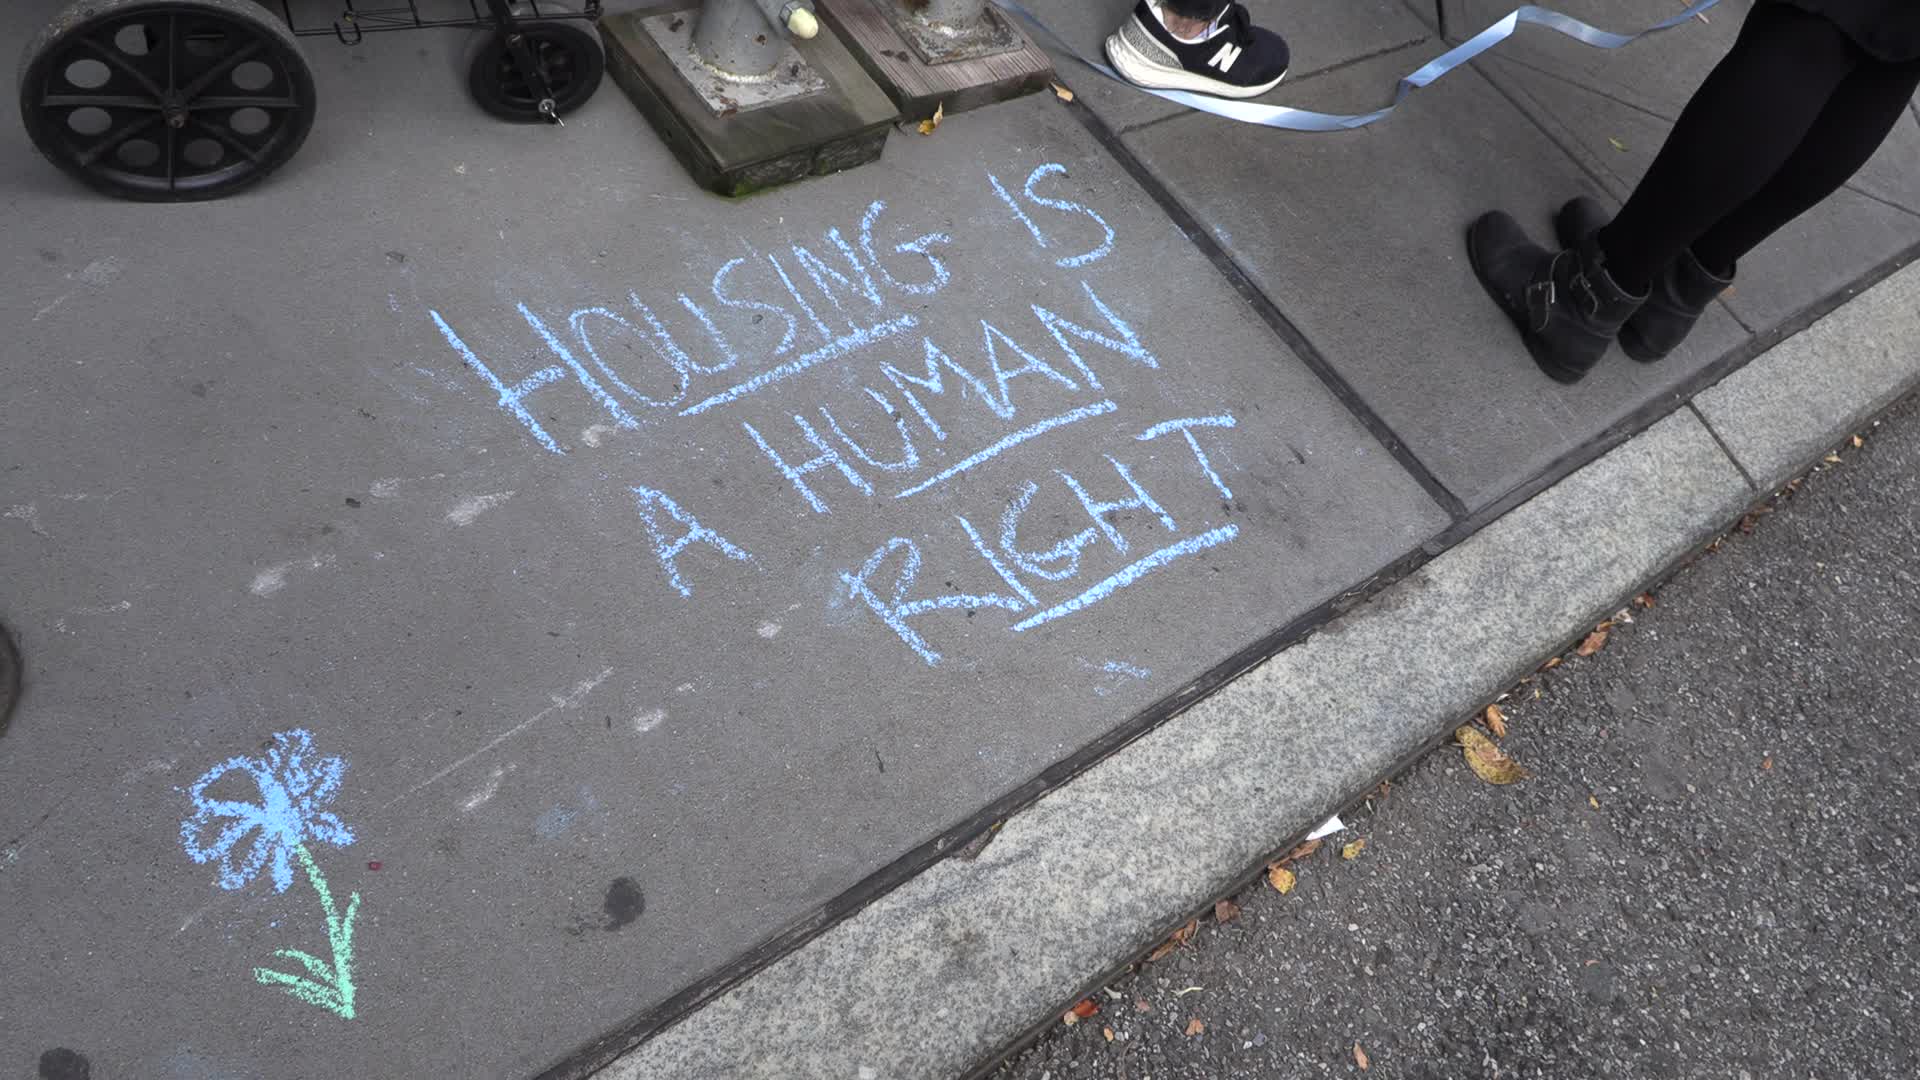 HOUSING IS
A HUMAN
RIGHT
N